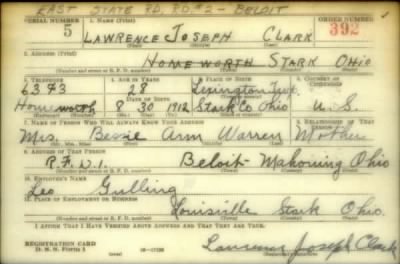 EAST STATE RD. RD#2 - BELOIT
SERIAL NUMBER 1. Name (Print) ORDER NUMBER
5 LAWRENCE JOSEPH CLARK 392
(First) (Middle) (Last)
2. Address (Print)
HOMEWORTH STARK OHIO
(Number and street or R. F. D. number) (Town) (County) (State)
3. Telephone 4. Age in Years 5. Place of Birth 6. Country of Citizenship
6373 28 Lexington Twp.
Date of Birth
Homeworth 8 30 1912 Stark Co Ohio U. S.
(Exchange) (Number) (Mo.) (Day) (Yr.) (State or country)
7. Name of Person Who Will Always Know Your Address 8. Relationship of That Person
Mrs. Bessie Ann Warren Mother
(Mr., Mrs., Miss) (First) (Middle) (Last)
9. Address of That Person
R.F.D.1. Beloit- Mahoning Ohio
(Number and street or R. F. D. number) (Town) (County) (State)
10. Employer's Name
Leo Gulling
11. Place of Employment or Business
Louisville Stark Ohio.
(Number and street or R. F. D. number) (Town) (County) (State)
I Affirm That I Have Verified Above Answers and That They Are True.
REGISTRATION CARD
D. S. S. Form 1 Lawrence Joseph Clark